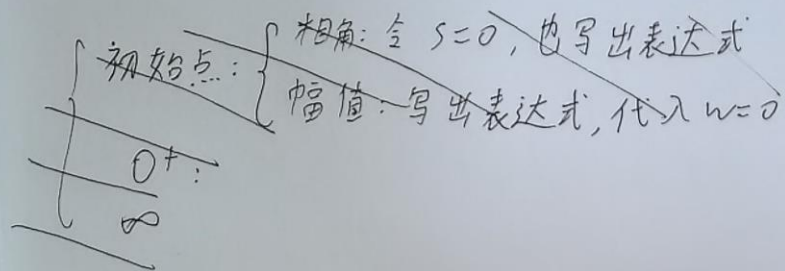 初始点: 相角: 令 s=0, 也写出表达式
幅值: 写出表达式, 代入 w=0
0⁺:
∞